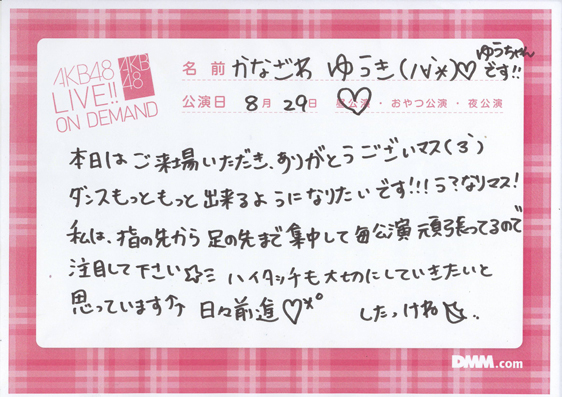 AKB48
LIVE!!
ON DEMAND
AKB
48
名 前 かなざわ ゆうき(ハ´ⅹ`)♡ ゆうちゃんです!!
公演日 8月 29日 昼公演・おやつ公演・夜公演
本日はご来場いただき、ありがとうございマス(´3`)
ダンスもっともっと出来るようになりたいです!!! う?なりマス!
私は、指の先から足の先まで集中して毎公演頑張ってるので
注目して下さい☆ミ ハイタッチも大切にしていきたいと
思っています↑↑ 日々前進♡*° したっけね
DMM.com